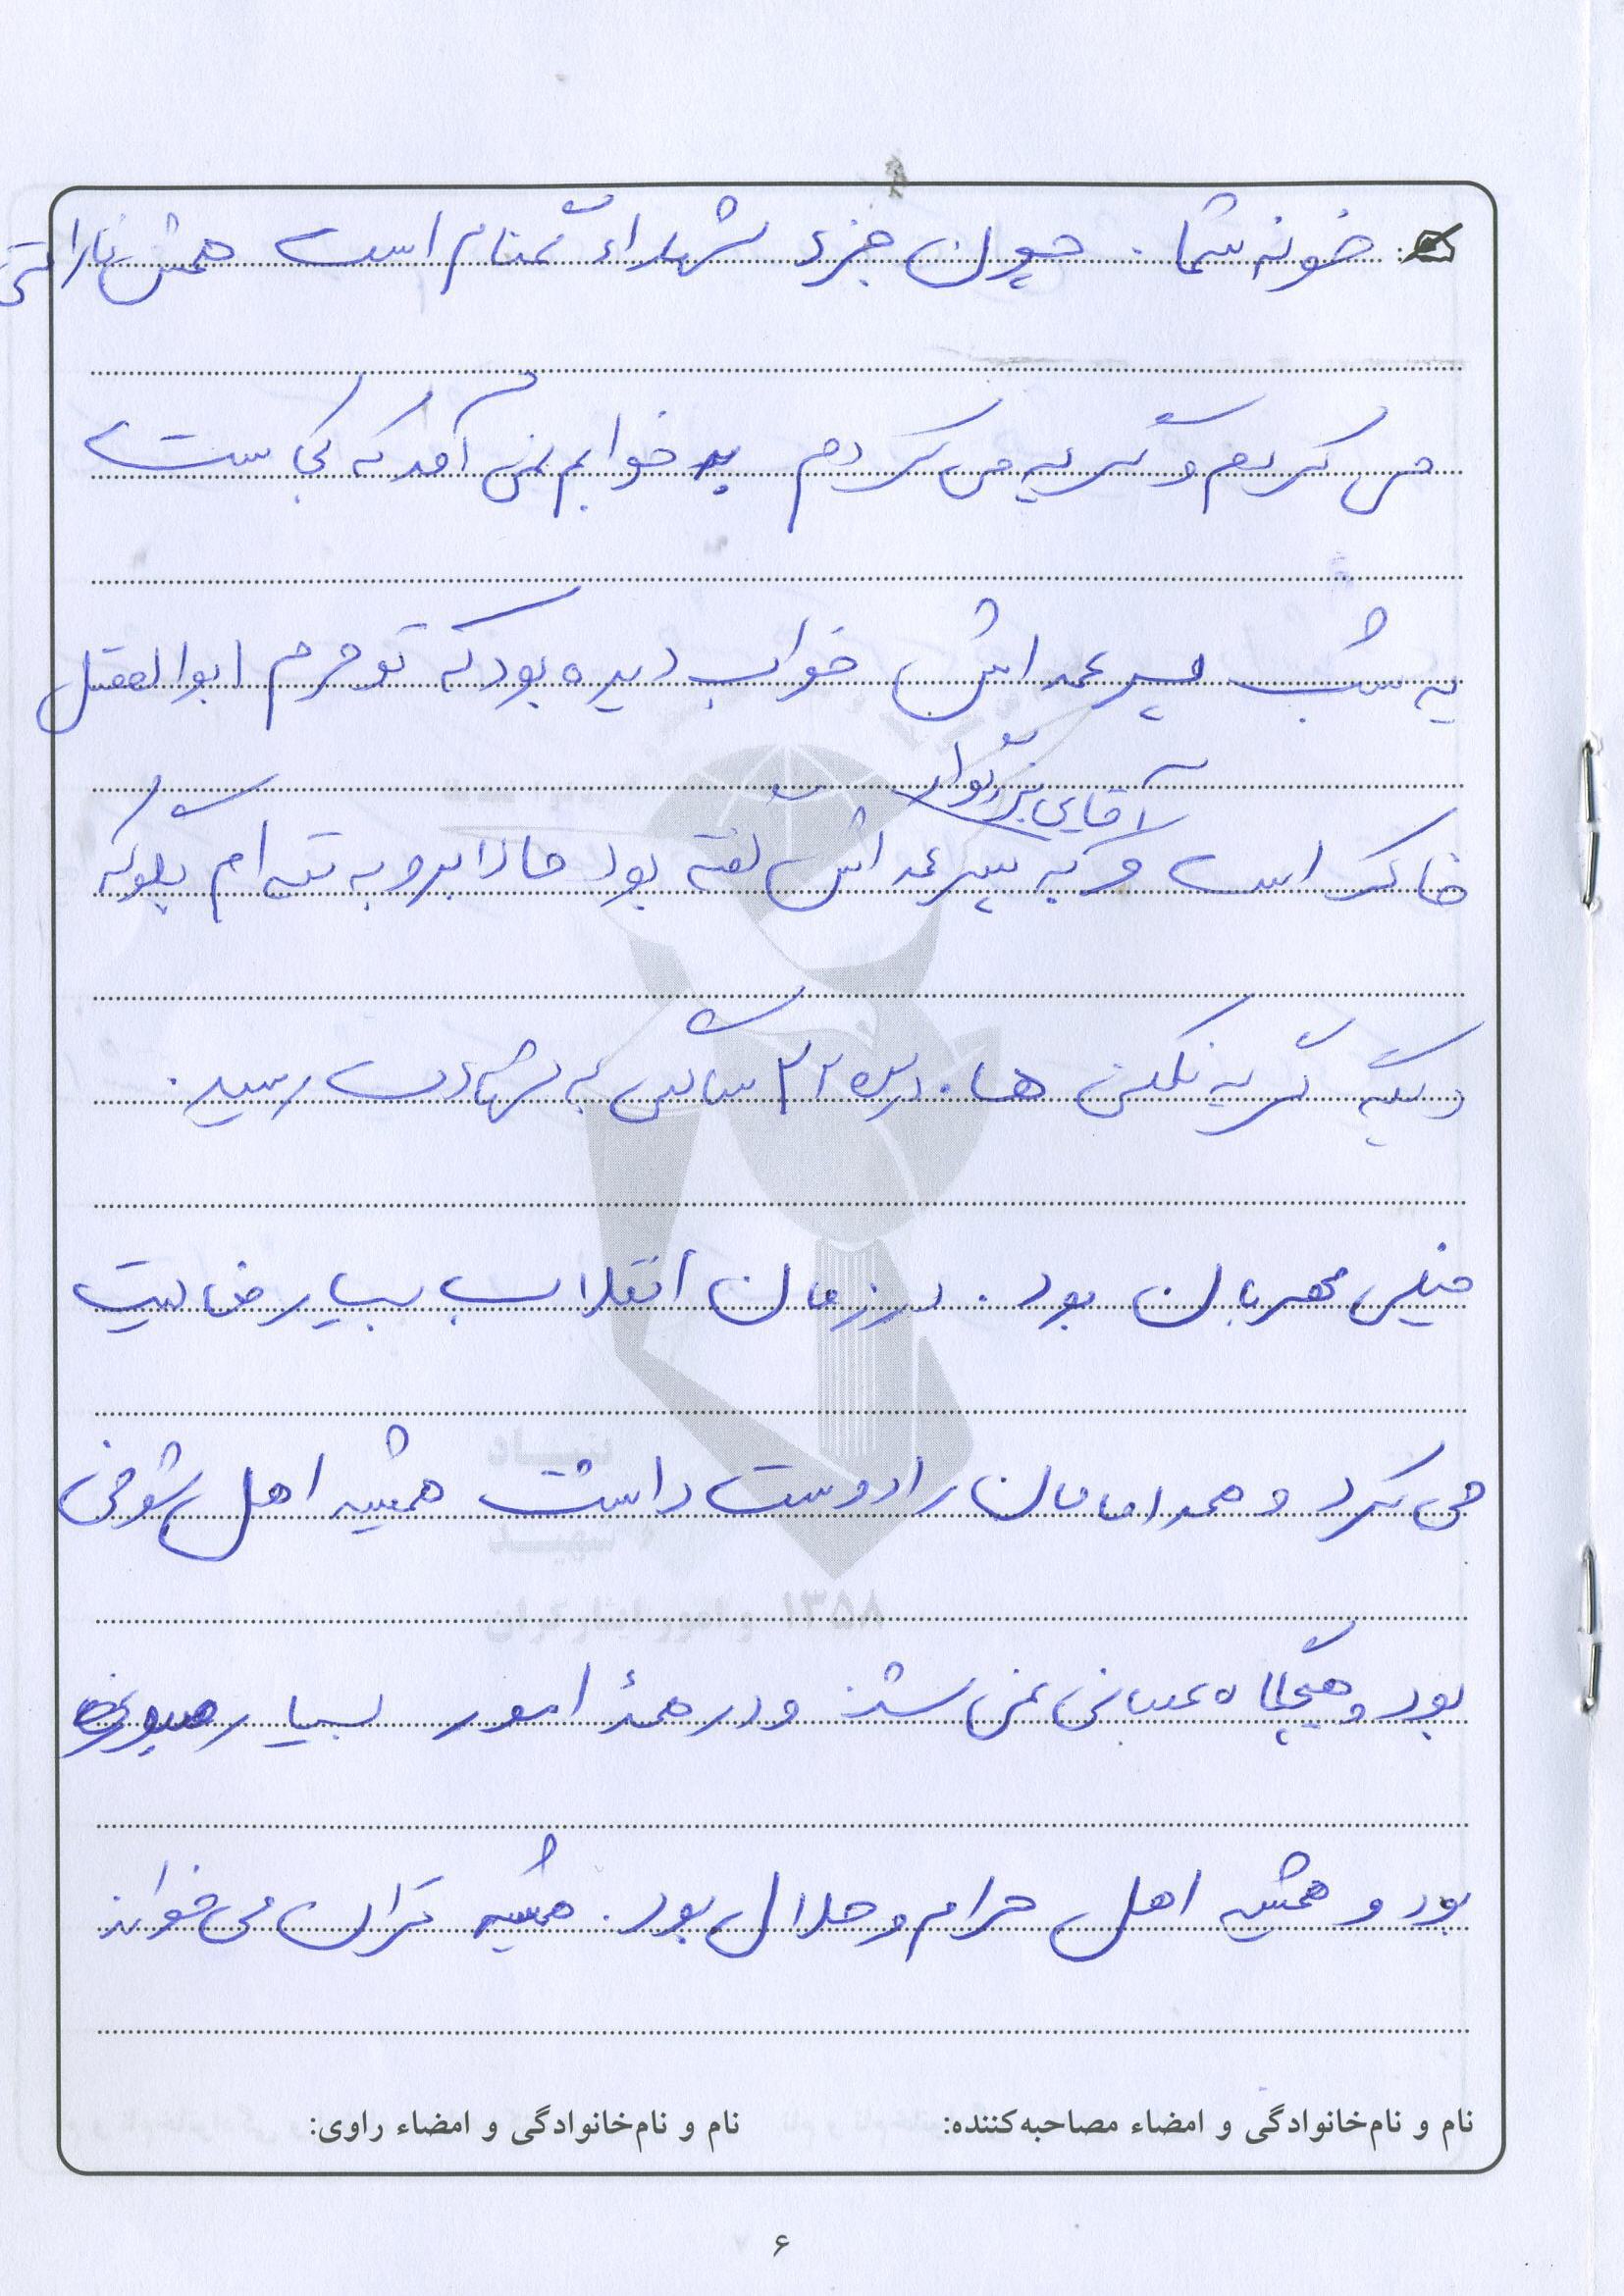 خونه شما. چون جزء شهداء گمنام است همش ناراحتی
می کردم و گریه می کردم به خوابم نمی آمد که کجاست
یه شب پسر عمه اش خواب دیده بود که تو حرم ابوالفضل
آقای بزرگوار
خاک است و به پسر عمه اش گفته بود حالا برو به ننه ام بگو که
دیگه گریه نکنی ها. در سن ۲۲ سالگی به شهادت رسید.
خیلی مهربان بود. در زمان انقلاب بسیار فعالیت
می کرد و همه امامان را دوست داشت همیشه اهل شوخی
بود و هیچگاه عصبانی نمی شد و در همهٔ امور بسیار
بود و همیشه اهل حرام و حلال بود. همیشه قرآن می خواند
نام و نام‌خانوادگی و امضاء مصاحبه‌کننده: نام و نام‌خانوادگی و امضاء راوی:
۶
بنیاد
شهید
و امور ایثارگران ۱۳۵۸